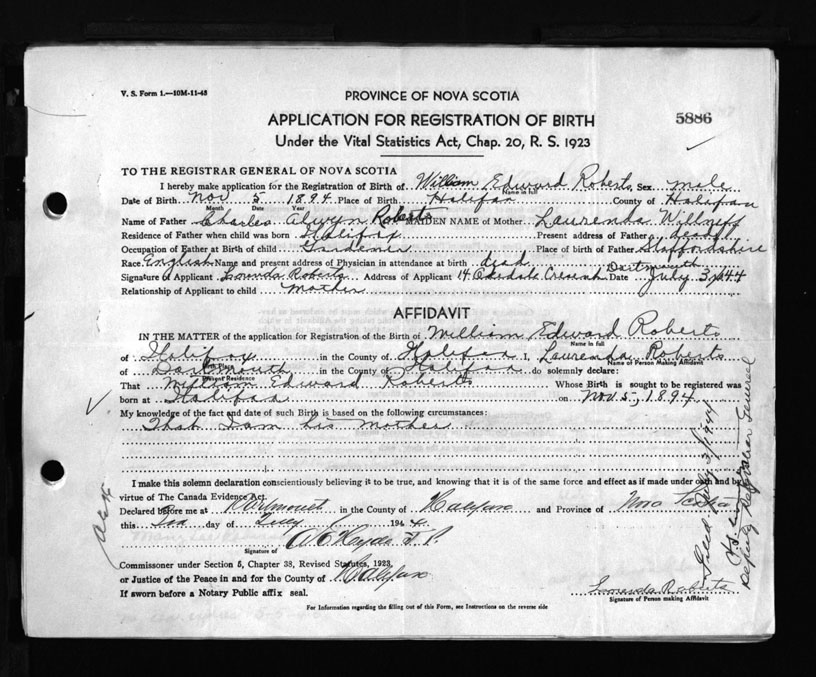 V. S. Form 1.—10M-11-43
PROVINCE OF NOVA SCOTIA
APPLICATION FOR REGISTRATION OF BIRTH
5886
Under the Vital Statistics Act, Chap. 20, R. S. 1923
TO THE REGISTRAR GENERAL OF NOVA SCOTIA
I hereby make application for the Registration of Birth of William Edward Roberts, Sex male
Name in full
Date of Birth Nov 5 1894 Place of Birth Halifax County of Halifax
Month Date Year
Name of Father Charles Alwyn Roberts MAIDEN NAME of Mother Laurenda
Residence of Father when child was born Halifax Present address of Father dead
Occupation of Father at Birth of child Gardener Place of birth of Father Staffordshire
Race English Name and present address of Physician in attendance at birth dead
Dartmouth
Signature of Applicant Roberts Address of Applicant 14 Date July 3/44
Relationship of Applicant to child mother
AFFIDAVIT
IN THE MATTER of the application for Registration of the Birth of William Edward Roberts
Name in full
of Halifax in the County of Halifax I, Laurenda Roberts
Birth Place
Name of Person Making Affidavit
of Dartmouth in the County of Halifax do solemnly declare:
Present Residence
That William Edward Roberts Whose Birth is sought to be registered was
born at Halifax on Nov 5, 1894
My knowledge of the fact and date of such Birth is based on the following circumstances:
That I am his mother
I make this solemn declaration conscientiously believing it to be true, and knowing that it is of the same force and effect as if made under oath and by
virtue of The Canada Evidence Act.
Declared before me at Dartmouth in the County of Halifax and Province of Nova Scotia
this day of July 1944
Signature of
Commissioner under Section 5, Chapter 38, Revised Statutes, 1923,
or Justice of the Peace in and for the County of Halifax
If sworn before a Notary Public affix seal.
Roberts
Signature of Person making Affidavit
For Information regarding the filling out of this Form, see Instructions on the reverse side
Deputy Registrar General